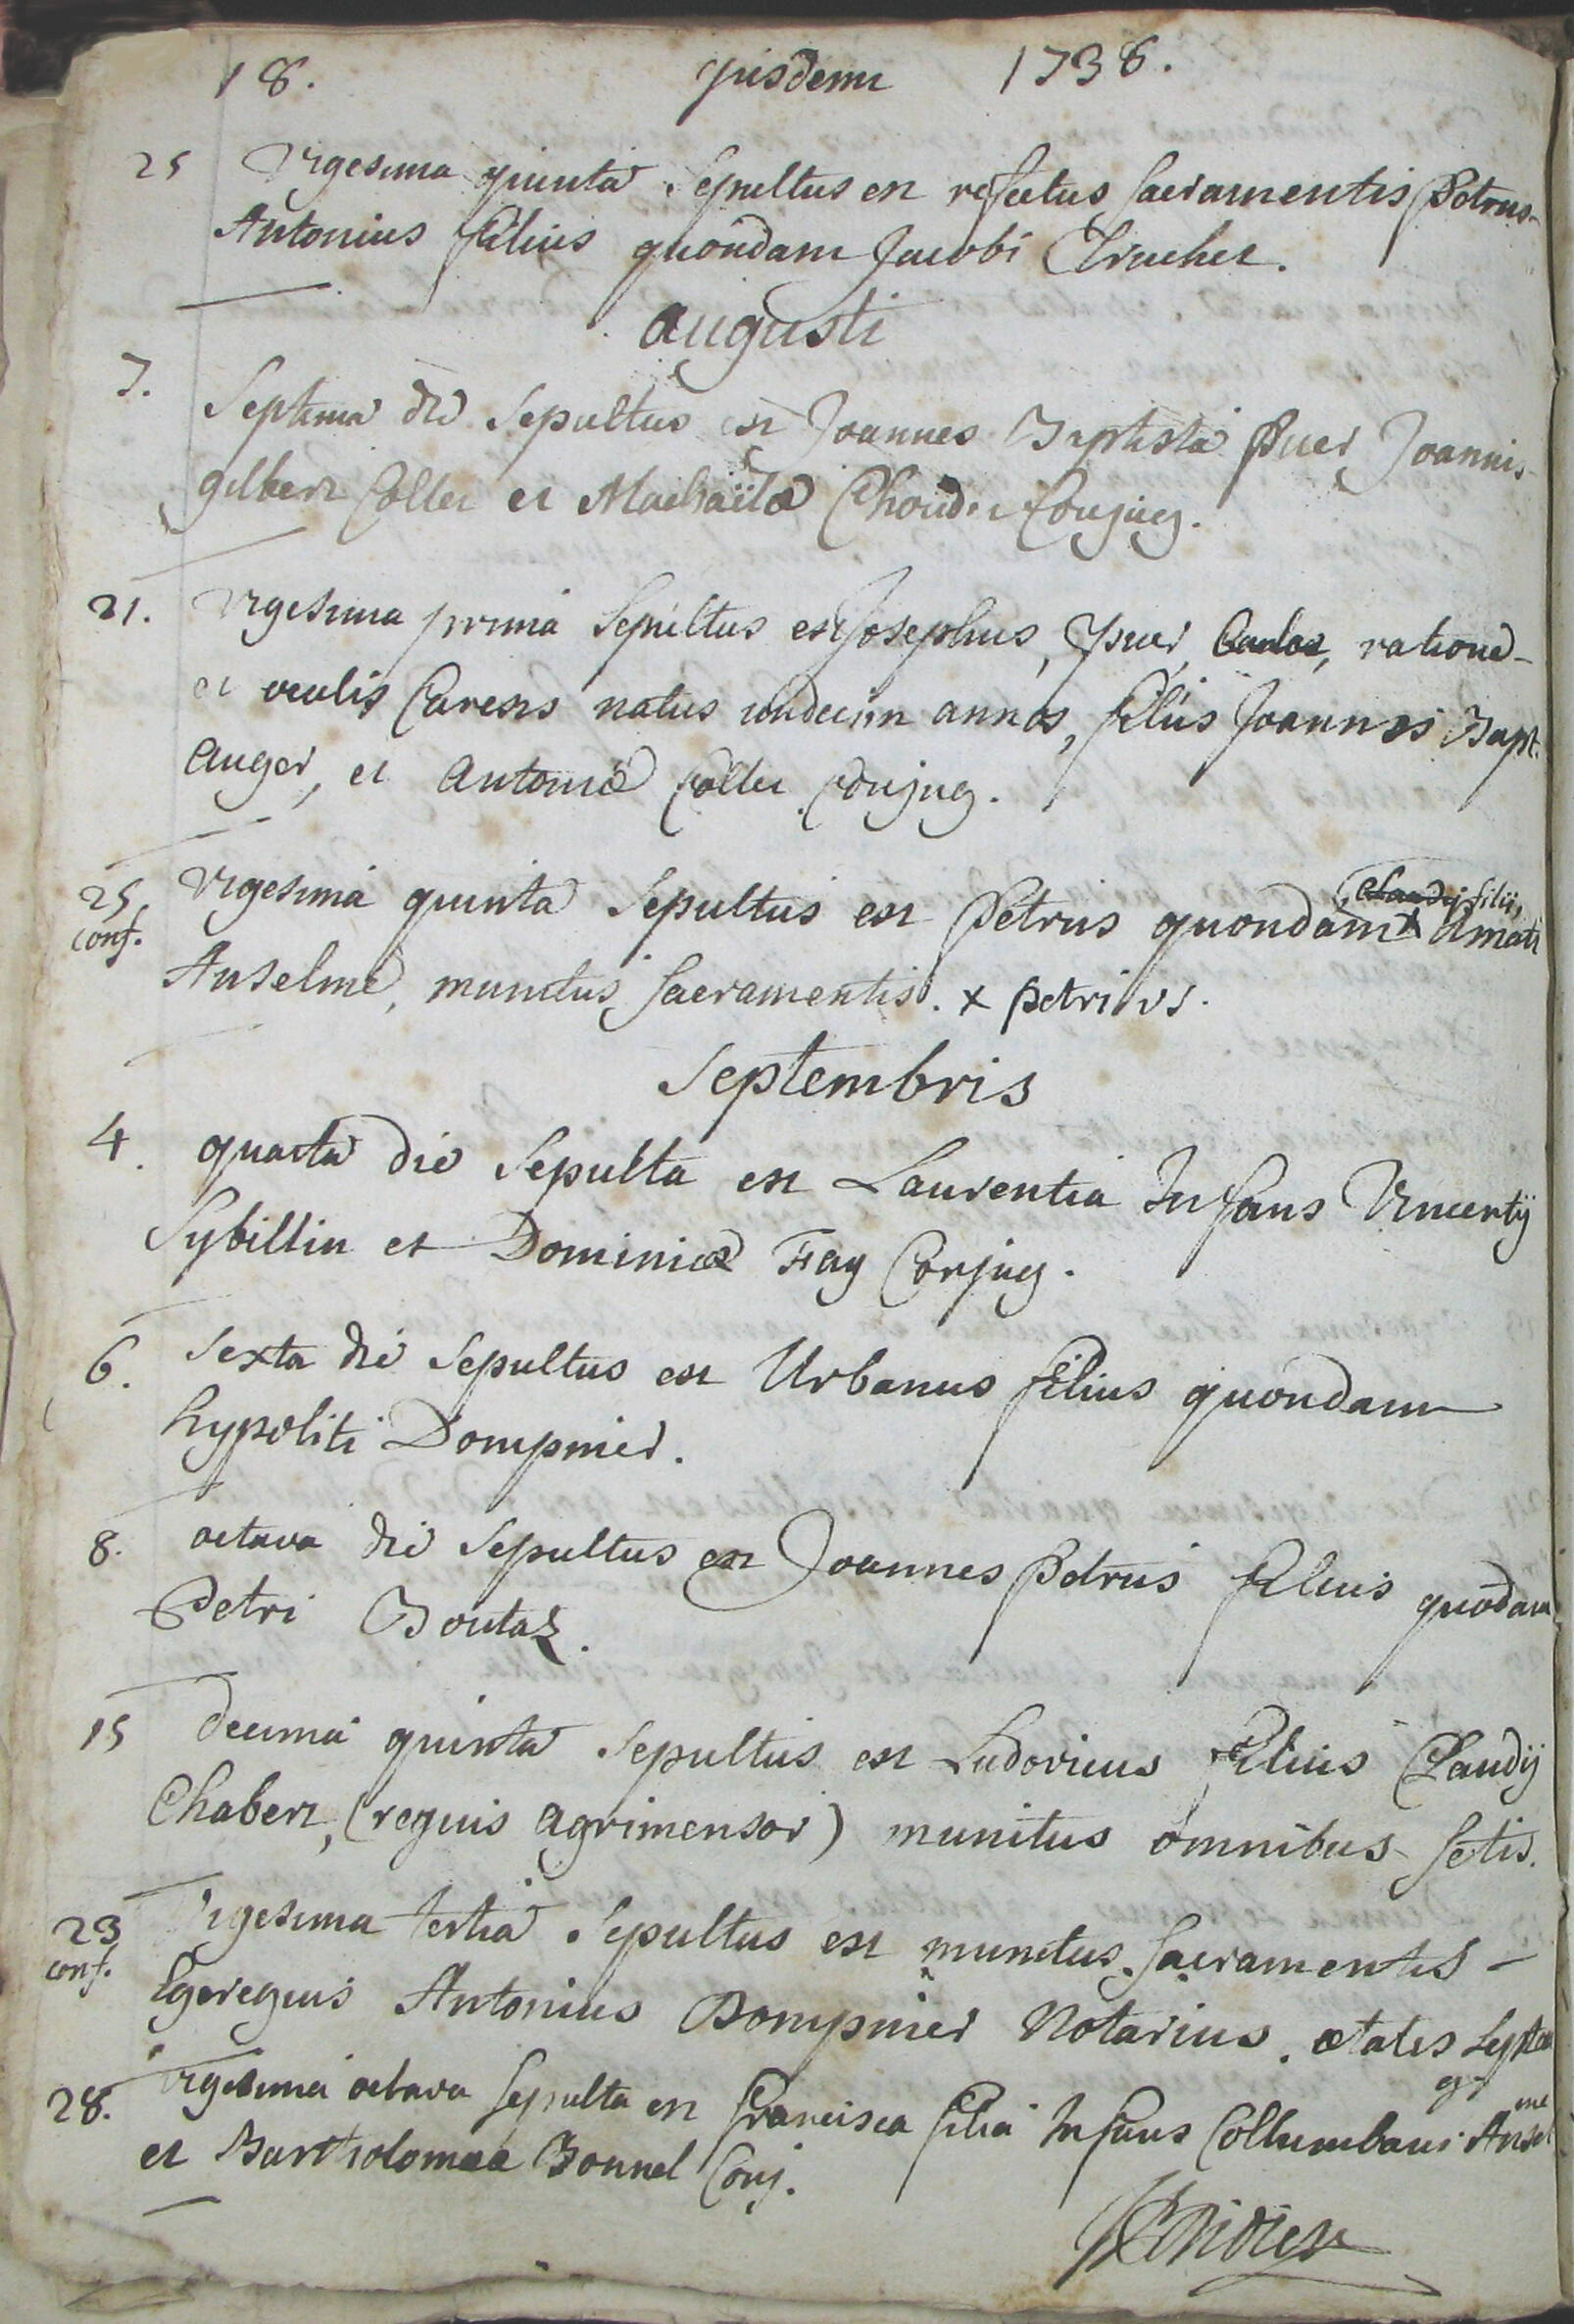 18. ejusdem 1738.
25 Vigesima quinta Sepultus est refectus Sacramentis Petrus
Antonius filius quondam Jacobi Truchet.
augusti
7. Septima die Sepultus est Joannes Baptista puer Joannis
gilbert Collet et Michaëlae Choudet Conjug.
21. vigesima prima Sepultus est Josephus, puer, ratione
et oculis Carens natus undecim annos, filius Joannis Bapt.
Auger, et Antoniae Collet Conjug.
, Claudij filii,
25 Vigesima quinta Sepultus est Petrus quondam x Amati
conf. Anselme, munitus Sacramentis. x petri vs.
Septembris
4. quarta die Sepulta est Laurentia Infans Vincentij
Sybillin et Dominicae Fay Conjug.
6. Sexta die Sepultus est Urbanus filius quondam
hypoliti Dompnier.
8. octava die Sepultus est Joannes Petrus filius quodam
Petri Boutaz.
15 decima quinta Sepultus est Ludovicus filius Claudij
Chabert, (regius agrimensor) munitus omnibus Sctis.
23 vigesima tertia Sepultus est munitus Sacramentis
conf. Egeregius Antonius Dompnier Notarius. aetatis
28. Vigesima octava Sepulta est francisca filia Infans Collumbani Anselme
et Bartholomaea Bonnel Conj.